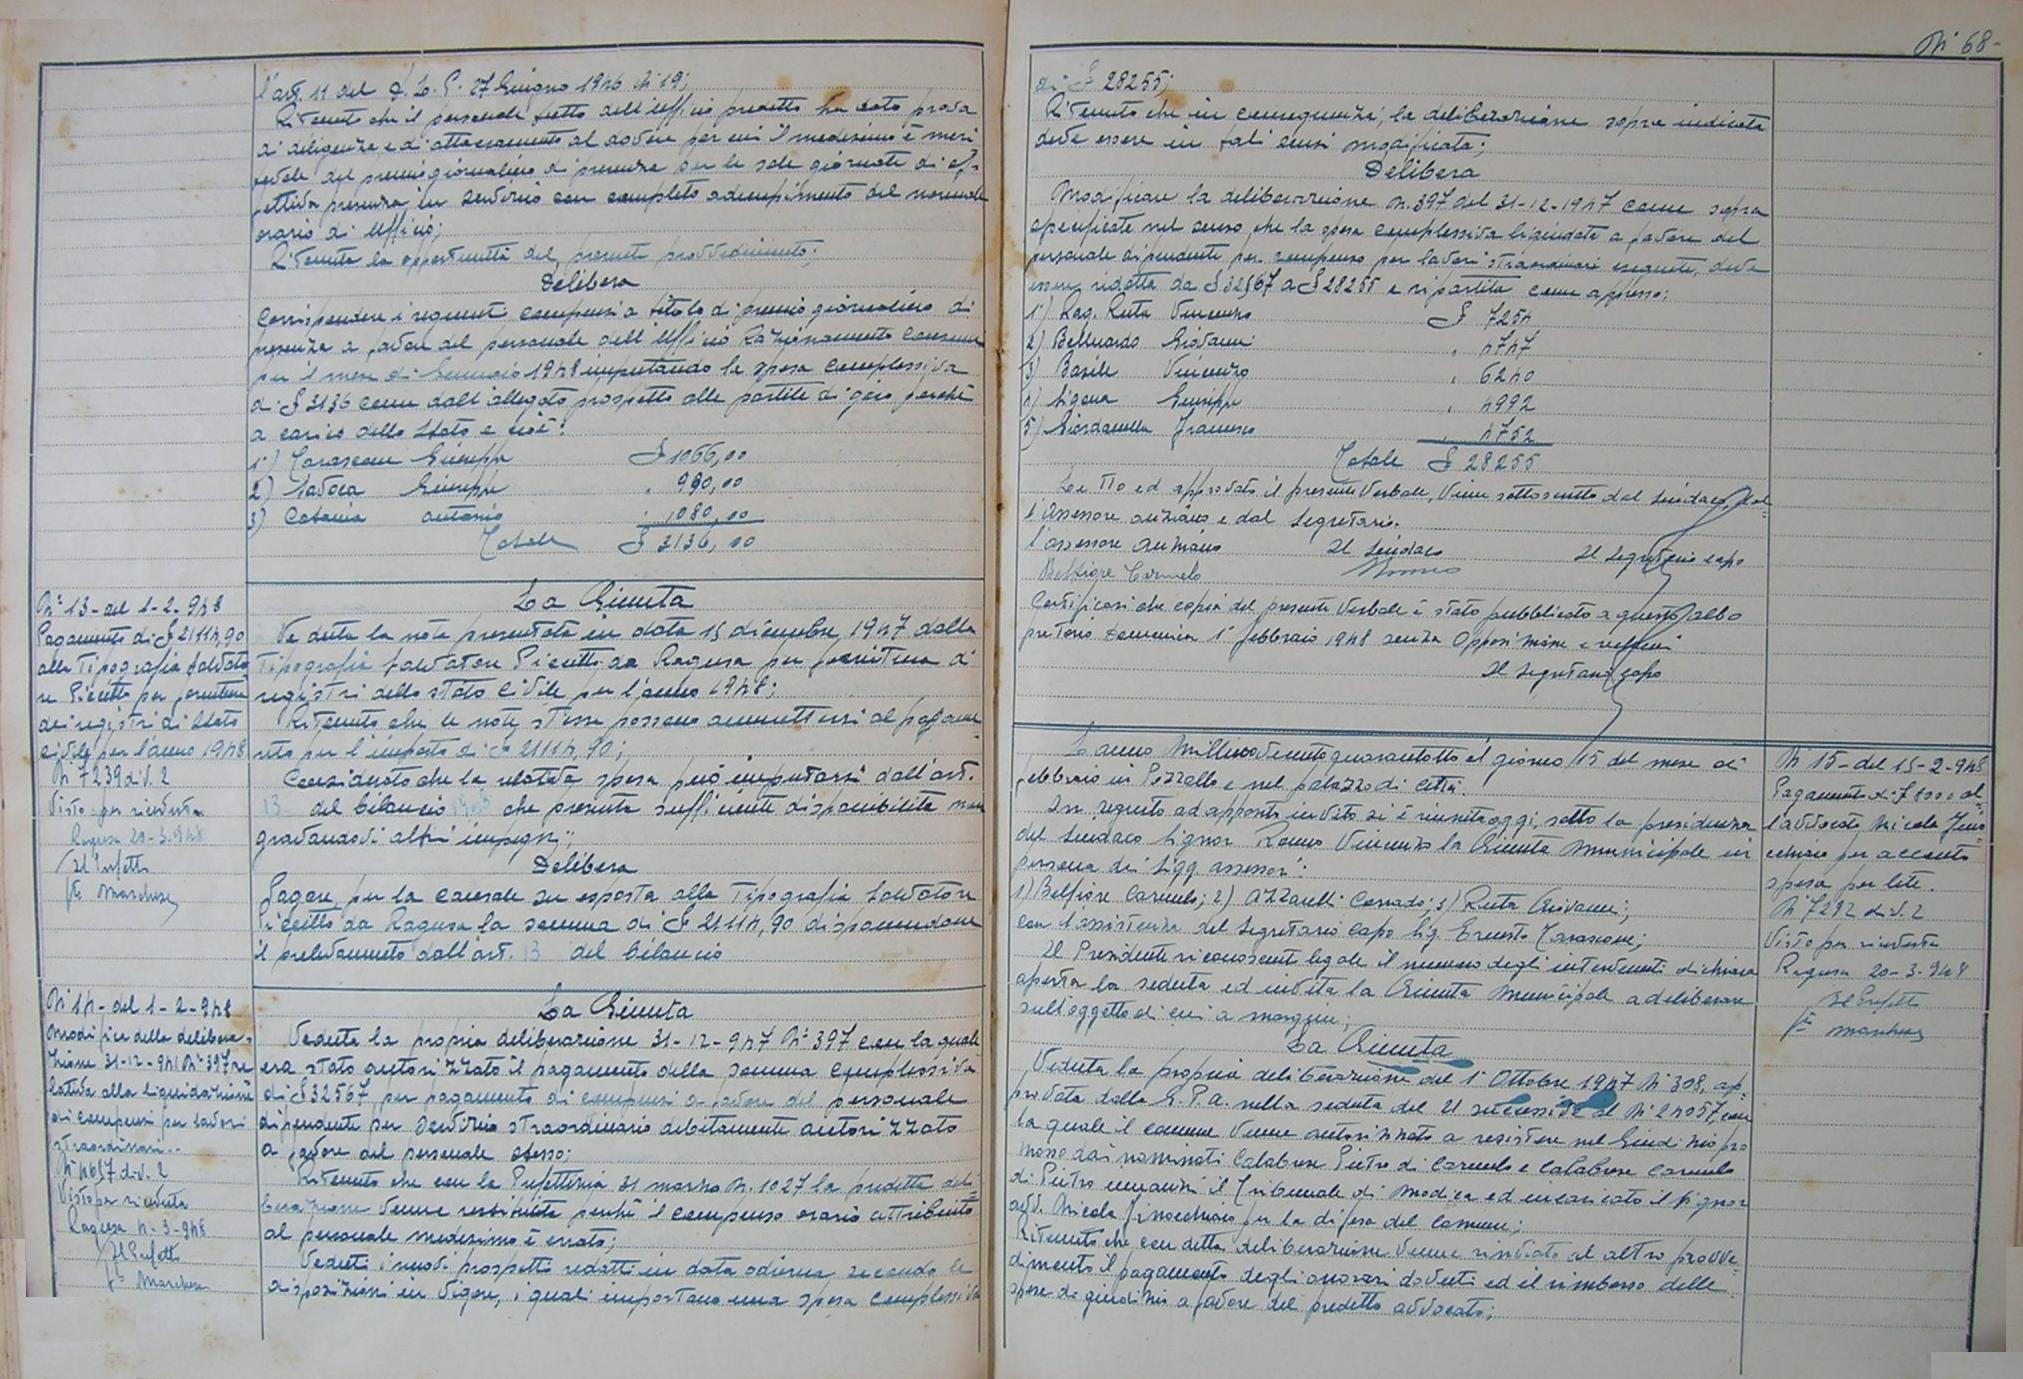 l'art. 11 del D. L. P. 27 Giugno 1946 N° 19;
Ritenuto che il personale tutto dell'Ufficio predetto ha dato prova
di diligenza e di attaccamento al dovere per cui il medesimo è meri
tevole del premio giornaliero di presenza per le sole giornate di ef-
fettiva presenza in servizio con completo adempimento del normale
orario di Ufficio;
Ritenuta la opportunità del presente provvedimento;
Delibera
Corrispondere i seguenti compensi a titolo di premio giornaliero di
presenza a favore del personale dell'Ufficio Razionamento Consumi
per il mese di Gennaio 1948 imputando la spesa complessiva
di £ 3136 come dall'allegato prospetto alle partite di giro perchè
a carico dello Stato e cioè:
1°) Carascone Giuseppe £ 1066,00
2) Savoca Giuseppe " 990,00
3) Catania Antonio " 1080,00
Totale £ 3136,00
N° 13 - del 1-2-948
Pagamento di £ 21114,90
alla Tipografia Salvato
re Piccitto per fornitura
dei registri di Stato
Civile per l'anno 1948
N° 7239 div. 2
Visto per ricevuta
Ragusa 20-3-948
Il Prefetto
f.to Marchese
La Giunta
Veduta la nota presentata in data 15 dicembre 1947 dalla
Tipografia Salvatore Piccitto da Ragusa per fornitura di
registri dello stato Civile per l'anno 1948;
Ritenuto che le note stesse possono ammettersi al pagame
nto per l'importo di £ 21114,90;
Considerato che la relativa spesa può imputarsi dall'art.
13 del bilancio 1948 che presenta sufficiente disponibilità non
gravandovi altri impegni;
Delibera
Pagare, per la causale su esposta alla Tipografia Salvatore
Piccitto da Ragusa la somma di £ 21114,90 disponendone
il prelevamento dall'art. 13 del bilancio
N° 14 - del 1-2-948
Modifica della delibera-
zione 31-12-947 N° 397 re
lativa alla liquidazione
di compensi per lavori
straordinari..
N° 4657 div. 2
Visto per ricevuta
Ragusa 4-3-948
Il Prefetto
f.to Marchese
La Giunta
Veduta la propria deliberazione 31-12-947 N° 397 con la quale
era stato autorizzato il pagamento della somma complessiva
di £ 32567 per pagamento di compensi a favore del personale
dipendente per servizio straordinario debitamente autorizzato
a favore del personale stesso;
Ritenuto che con la Prefettizia 31 marzo N. 1027 la predetta deli
berazione venne restituita perchè il compenso orario attribuito
al personale medesimo è errato;
Veduti i nuovi prospetti redatti in data odierna secondo le
disposizioni in vigore, i quali importano una spesa complessiva
N° 68-
di £ 28255;
Ritenuto che in conseguenza, la deliberazione sopra indicata
deve essere in tali sensi modificata;
Delibera
Modificare la deliberazione N. 397 del 31-12-1947 come sopra
specificata nel senso che la spesa complessiva liquidata a favore del
personale dipendente per compenso per lavori straordinari eseguiti, deve
essere ridotta da £ 32567 a £ 28255 e ripartita come appresso:
1°) Rag. Ruta Vincenzo £ 7254
2) Belluardo Giovanni " 4747
3) Basile Vincenzo " 6240
4) Ligera Giuseppe " 4992
5) Giordanella Francesco " 4752
Totale £ 28255
Letto ed approvato il presente Verbale, Viene sottoscritto dal Sindaco, dal=
l'Assessore anziano e dal Segretario.
l'assessore Anziano Il Sindaco Il Segretario capo
Belfiore Carmelo Romeo
Certificasi che copia del presente Verbale è stato pubblicato a questo albo
pretorio Domenica 1° febbraio 1948 senza Opposizione e reclami
Il Segretario Capo
L'anno Millenovecentoquarantotto il giorno 15 del mese di
febbraio in Pozzallo e nel palazzo di Città.
In seguito ad apposito invito si è riunita oggi, sotto la presidenza
del Sindaco Signor Romeo Vincenzo la Giunta Municipale in
persona dei Sigg. assessori:
1) Belfiore Carmelo; 2) Azzarelli Corrado; 3) Ruta Giovanni;
con l'assistenza del Segretario Capo Sig. Ernesto Carascone;
Il Presidente riconosciuto legale il numero degli intervenuti dichiara
aperta la seduta ed invita la Giunta Municipale a deliberare
sull'oggetto di cui a margine;
N° 15 - del 15-2-948
Pagamento di £ 8000 al=
l'avvocato Nicola Fino
cchiaro per acconto
spesa per lite.
N° 7292 div. 2
Visto per ricevuta
Ragusa 20-3-948
Il Prefetto
f.to Marchese
La Giunta
Veduta la propria deliberazione del 1° Ottobre 1947 N° 308, ap-
provata dalla G.P.A. nella seduta del 21 successivo al N° 24057, con
la quale il comune venne autorizzato a resistere nel Giudizio pro
mosso dai nominati Calabrese Pietro di Carmelo e Calabrese Carmelo
di Pietro innanzi il Tribunale di Modica ed incaricato il Signor
avv. Nicola Finocchiaro per la difesa del Comune;
Ritenuto che con detta deliberazione venne rinviato ad altro provve
dimento il pagamento degli onorari dovuti ed il rimborso delle
spese di giudizio a favore del predetto avvocato;